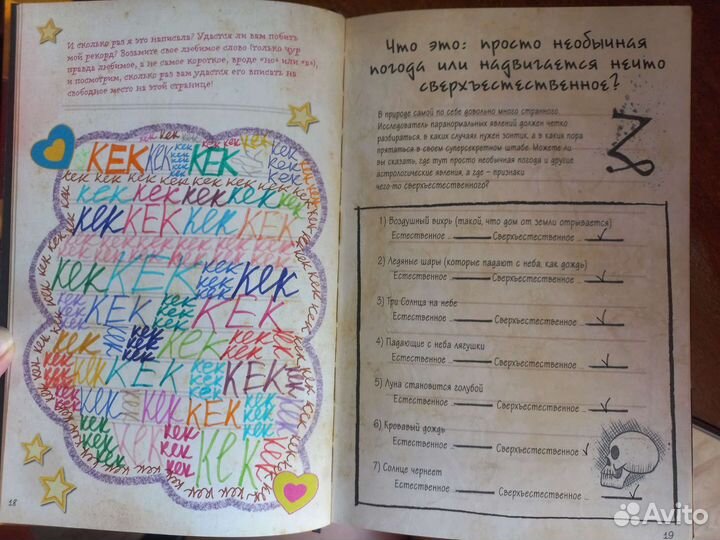 И сколько раз я это написала? Удастся ли вам побить
мой рекорд? Возьмите свое любимое слово (только чур
правда любимое, а не самое короткое, вроде «но» или «а»),
и посмотрим, сколько раз вам удастся его вписать на
свободное место на этой странице!
кек кек
КЕК кек кек КЕК кек
кек кек кек кек кек кек кек
кек кек кек кек кек
кек КЕК кек КЕК
кек кек кек кек кек кек
кек КЕК кек кек кек
кек КЕК кек КЕК
кек кек кек КЕК кек
кек кек КЕК кек КЕК
кек кек кек КЕК кек
кек КЕК кек КЕК кек
кек кек кек кек кек
18
Что это: просто необычная
погода или надвигается нечто
сверхъестественное?
В природе самой по себе довольно много странного.
Исследователь паранормальных явлений должен четко
разбираться, в каких случаях нужен зонтик, а в каких пора
прятаться в своем суперсекретном штабе. Можете ли
вы сказать, где тут просто необычная погода и другие
астрологические явления, а где – признаки
чего-то сверхъестественного?
1) Воздушный вихрь (такой, что дом от земли отрывается)
Естественное Сверхъестественное
2) Ледяные шары (которые падают с неба, как дождь)
Естественное Сверхъестественное
3) Три Солнца на небе
Естественное Сверхъестественное
4) Падающие с неба лягушки
Естественное Сверхъестественное
5) Луна становится голубой
Естественное Сверхъестественное
6) Кровавый дождь
Естественное Сверхъестественное
7) Солнце чернеет
Естественное Сверхъестественное
19
Avito